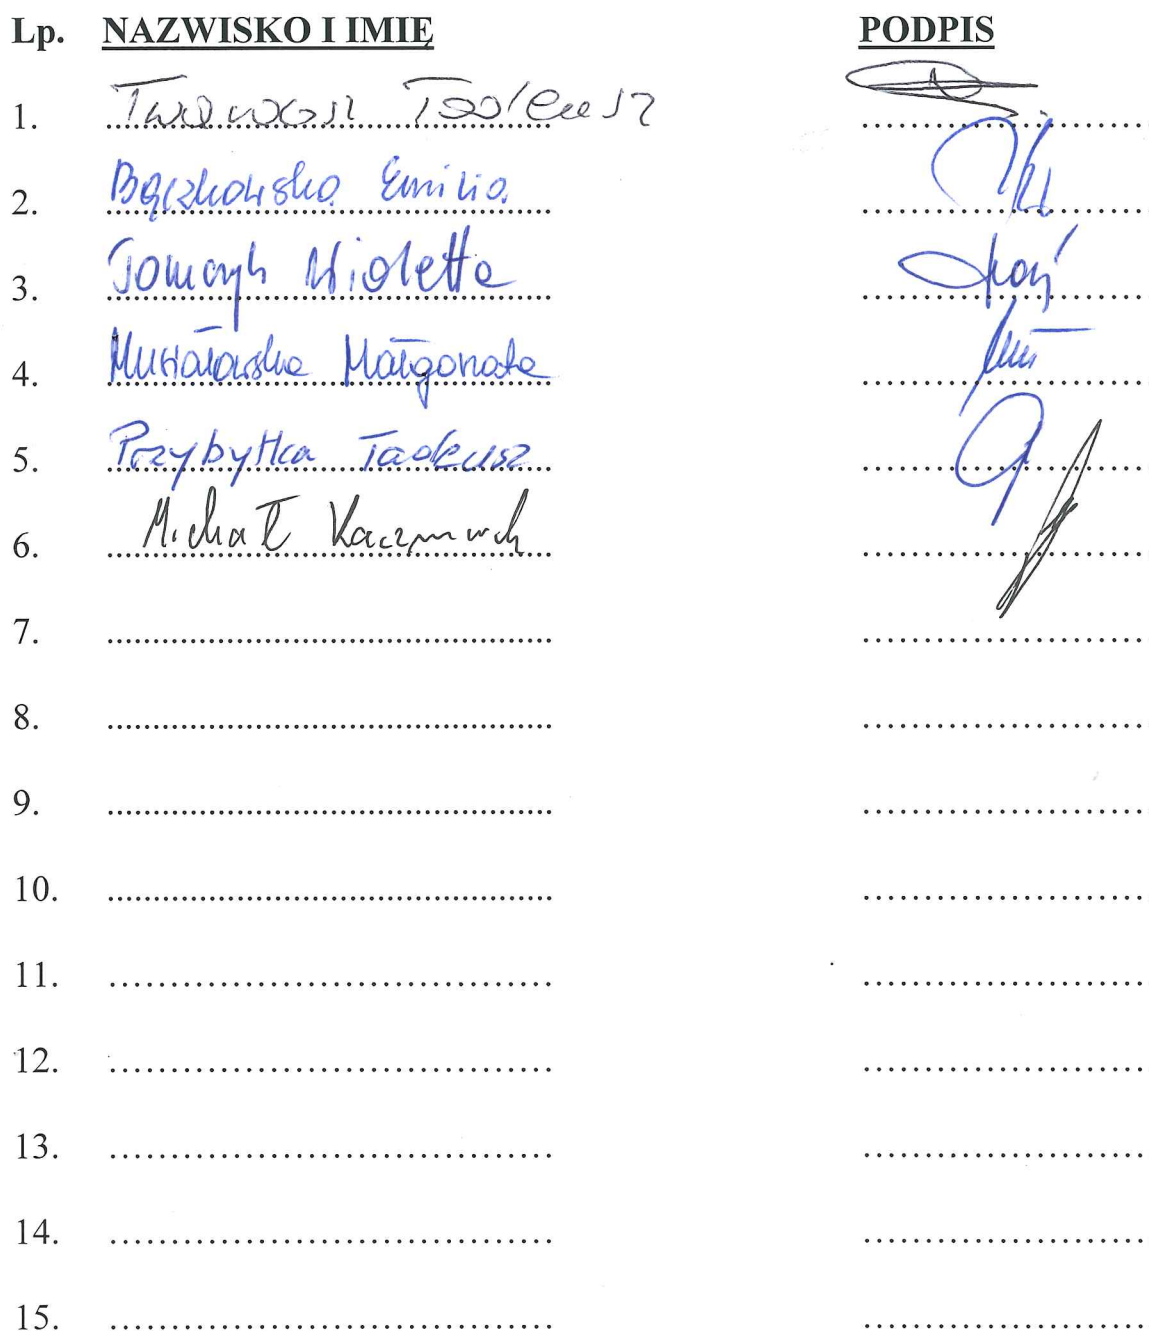 Lp. NAZWISKO I IMIĘ PODPIS
1. Twarogsz Tadeusz
2. Bączkowska Emilia
3. Tomczyk Wioletta
4. Musiałowska Małgorzata
5. Przybyłka Tadeusz
6. Michał Kaczmarek
7.
8.
9.
10.
11.
12.
13.
14.
15.